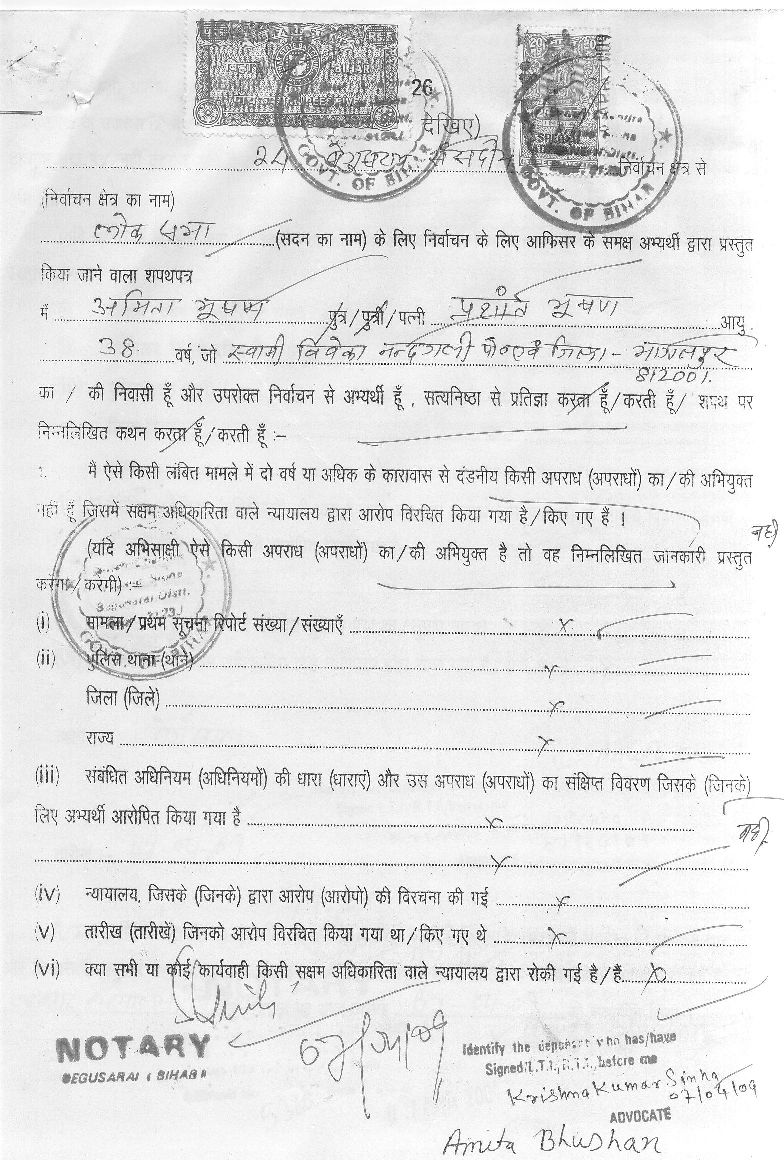 26
देखिए)
24 बेगूसराय संसदीय निर्वाचन क्षेत्र से
GOVT. OF BIHAR
GOVT. OF BIHAR
(निर्वाचन क्षेत्र का नाम)
लोक सभा (सदन का नाम) के लिए निर्वाचन के लिए आफिसर के समक्ष अभ्यर्थी द्वारा प्रस्तुत
किया जाने वाला शपथपत्र
मैं अमिता भूषण पुत्र/पुत्री/पत्नी प्रशांत भूषण आयु
38 वर्ष, जो स्वामी विवेका नन्द गली पो० एवं जिला - भागलपुर
812001.
का / की निवासी हूँ और उपरोक्त निर्वाचन से अभ्यर्थी हूँ , सत्यनिष्ठा से प्रतिज्ञा करता हूँ/करती हूँ/ शपथ पर
निम्नलिखित कथन करता हूँ/करती हूँ :–
मैं ऐसे किसी लंबित मामले में दो वर्ष या अधिक के कारावास से दंडनीय किसी अपराध (अपराधों) का/की अभियुक्त
नहीं हूँ जिसमें सक्षम अधिकारिता वाले न्यायालय द्वारा आरोप विरचित किया गया है/किए गए हैं ।
नहीं
(यदि अभिसाक्षी ऐसे किसी अपराध (अपराधों) का/की अभियुक्त है तो वह निम्नलिखित जानकारी प्रस्तुत
करेगा/करेगी) :–
(i) मामला/प्रथम सूचना रिपोर्ट संख्या/संख्याएँ x
(ii) पुलिस थाना (थाने) x
जिला (जिले) x
राज्य x
(iii) संबंधित अधिनियम (अधिनियमों) की धारा (धाराएं) और उस अपराध (अपराधों) का संक्षिप्त विवरण जिसके (जिनके)
लिए अभ्यर्थी आरोपित किया गया है x
नहीं
x
(iv) न्यायालय, जिसके (जिनके) द्वारा आरोप (आरोपो) की विरचना की गई x
(v) तारीख (तारीखें) जिनको आरोप विरचित किया गया था/किए गए थे x
(vi) क्या सभी या कोई कार्यवाही किसी सक्षम अधिकारिता वाले न्यायालय द्वारा रोकी गई है/हैं x
GOVT. OF BIHAR
NOTARY
BEGUSARAI (BIHAR)
07/04/09
Identify the deponent who has/have
Signed/L.T.I., R.T.I., before me
Krishna Kumar Sinha
07/04/09
ADVOCATE
Amita Bhushan